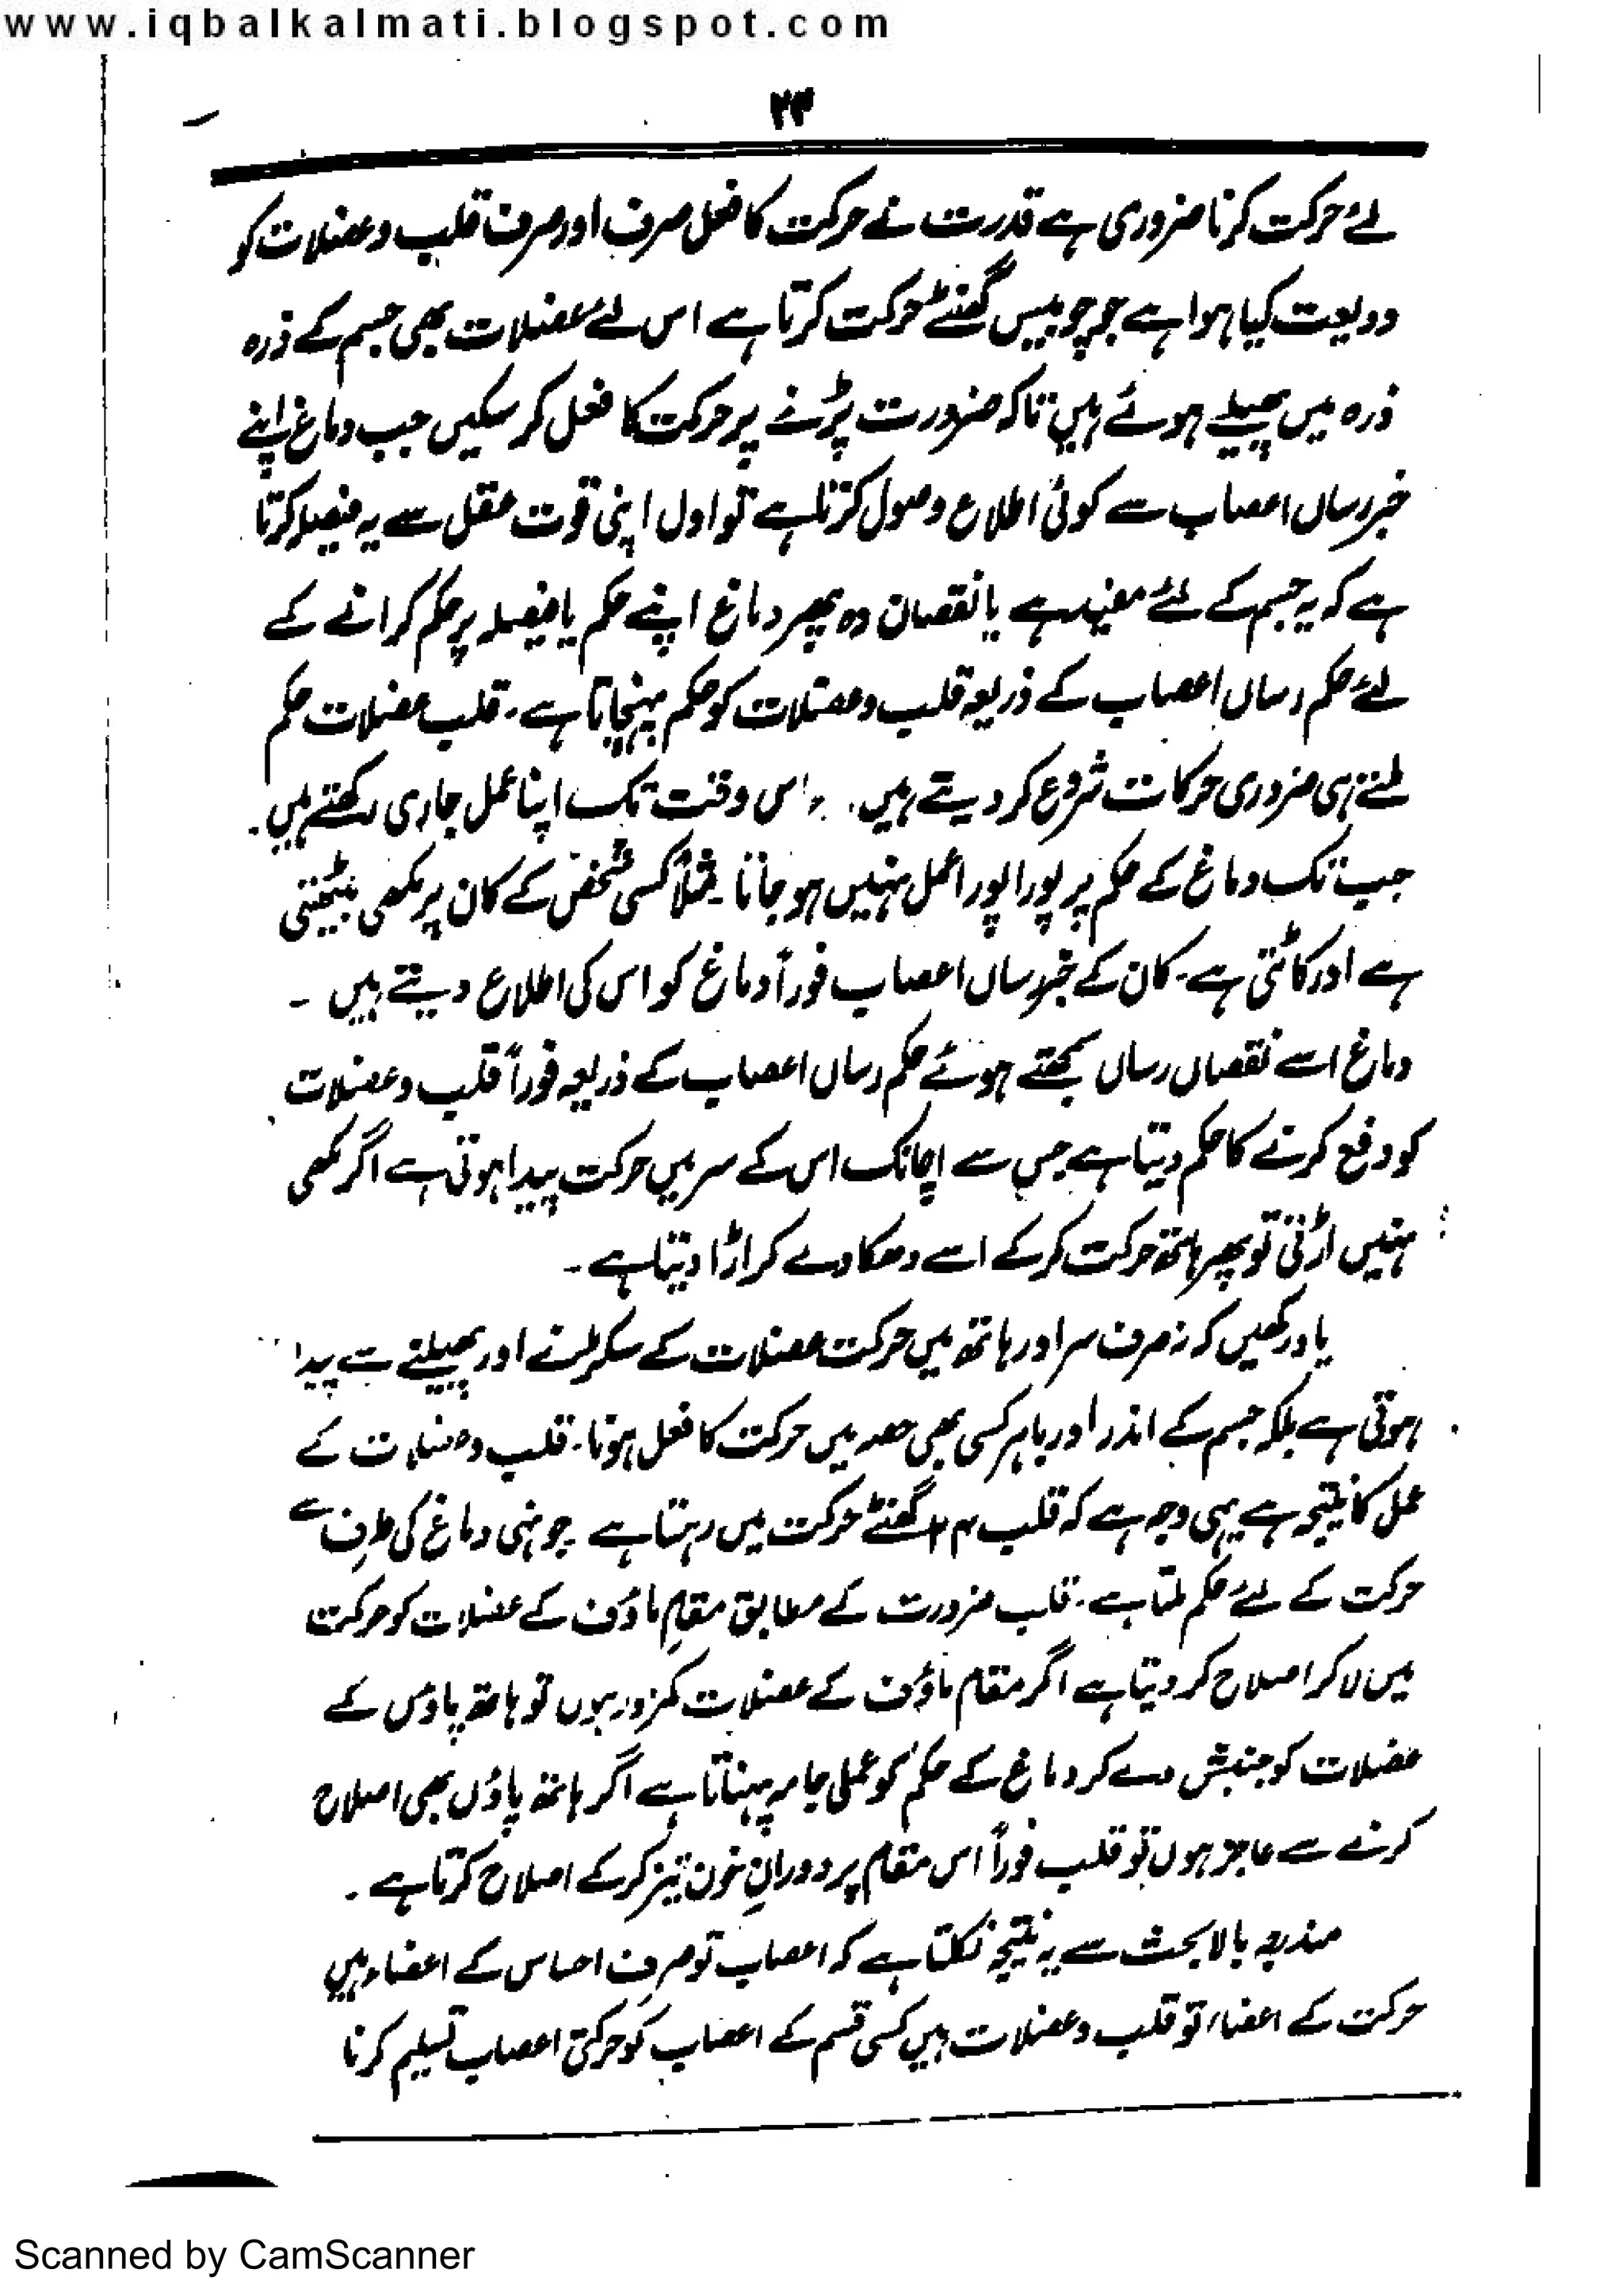 www.iqbalkalmati.blogspot.com
۲۳
لئے حرکت کرنا ضروری ہے قدرت نے حرکت کا فعل صرف اور صرف قلب و عضلات کو
ودیعت کیا ہوا ہے جو چوبیس گھنٹے حرکت کرتا ہے اس لئے عضلات بھی جسم کے ذرہ
ذرہ میں پھیلے ہوئے ہیں تاکہ ضرورت پڑنے پر حرکت کا فعل کر سکیں جب دماغ اپنے
خبر رساں اعصاب سے کوئی اطلاع وصول کرتا ہے تو اول اپنی قوت عقل سے یہ فیصلہ کرتا
ہے کہ یہ جسم کے لئے مفید ہے یا نقصان دہ پھر دماغ اپنے حکم یا فیصلہ پر حکم کرانے کے
لئے حکم رساں اعصاب کے ذریعہ قلب و عضلات کو حکم پہنچاتا ہے۔ قلب عضلات حکم
ملتے ہی ضروری حرکات شروع کر دیتے ہیں۔ اس وقت تک اپنا عمل جاری رکھتے ہیں۔
جب تک دماغ کے حکم پر پورا پورا عمل نہیں ہو جاتا۔ مثلاً کسی شخص کے کان پر مکھی بیٹھتی
ہے اور کاٹتی ہے۔ کان کے خبر رساں اعصاب فوراً دماغ کو اس کی اطلاع دیتے ہیں ۔
دماغ اسے نقصاں رساں سمجھتے ہوئے حکم رساں اعصاب کے ذریعہ فوراً قلب و عضلات
کو دفع کرنے کا حکم دیتا ہے جس سے اچانک اس کے سر میں حرکت پیدا ہوتی ہے اگر مکھی
نہیں اڑتی تو پھر ہاتھ حرکت کر کے اسے دھکا دے کر اڑا دیتا ہے ۔
یاد رکھیں کہ نہ صرف سر اور ہاتھ میں حرکت عضلات کے سکڑنے اور پھیلنے سے پیدا
ہوتی ہے بلکہ جسم کے اندر اور باہر کسی بھی حصہ میں حرکت کا فعل ہونا۔ قلب و عضلات کے
عمل کا نتیجہ ہے یہی وجہ ہے کہ قلب ۲۴ گھنٹے حرکت میں رہتا ہے جونہی دماغ کی طرف سے
حرکت کے لئے حکم ملتا ہے۔ قلب ضرورت کے مطابق مقامِ ماؤف کے عضلات کو حرکت
میں لا کر اصلاح کر دیتا ہے اگر مقام ماؤف کے عضلات کمزور ہوں تو ہاتھ پاؤں کے
عضلات کو جنبش دے کر دماغ کے حکم کو عملی جامہ پہناتا ہے اگر ہاتھ پاؤں بھی اصلاح
کرنے سے عاجز ہوں تو قلب فوراً اس مقام پر دورانِ خون تیز کر کے اصلاح کرتا ہے ۔
مندجہ بالا بحث سے یہ نتیجہ نکلتا ہے کہ اعصاب تو صرف احساس کے اعضاء ہیں
حرکت کے اعضاء تو قلب و عضلات ہیں کسی قسم کے اعصاب کو حرکتی اعصاب تسلیم کرنا
Scanned by CamScanner